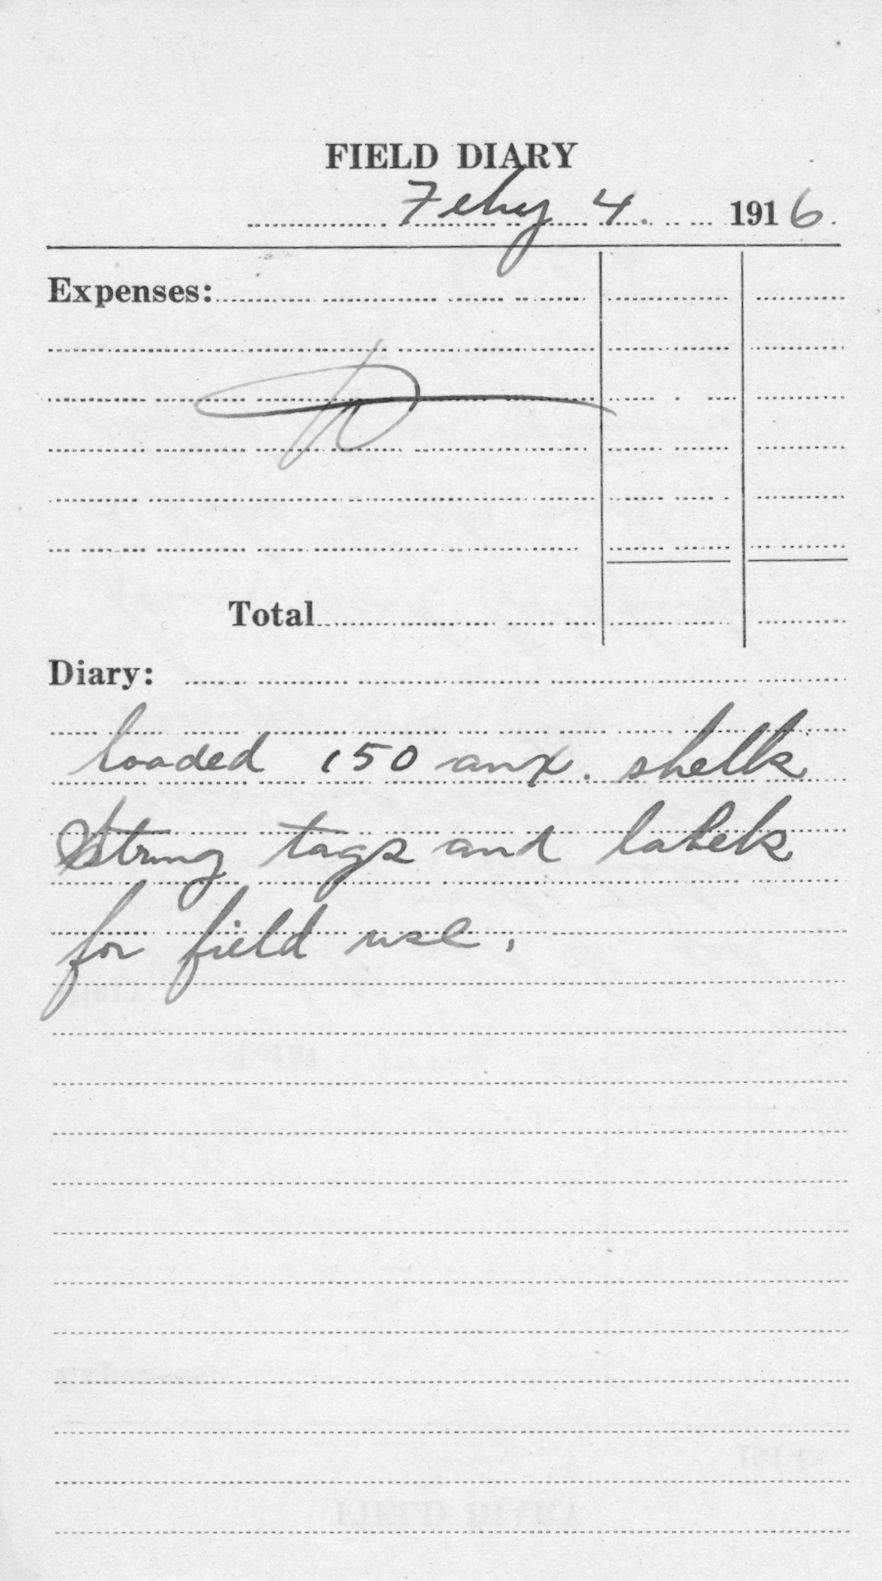 FIELD DIARY
Feby 4. 1916.
Expenses:
Total
Diary:
loaded 150 aux. shells
String tags and labels
for field use.